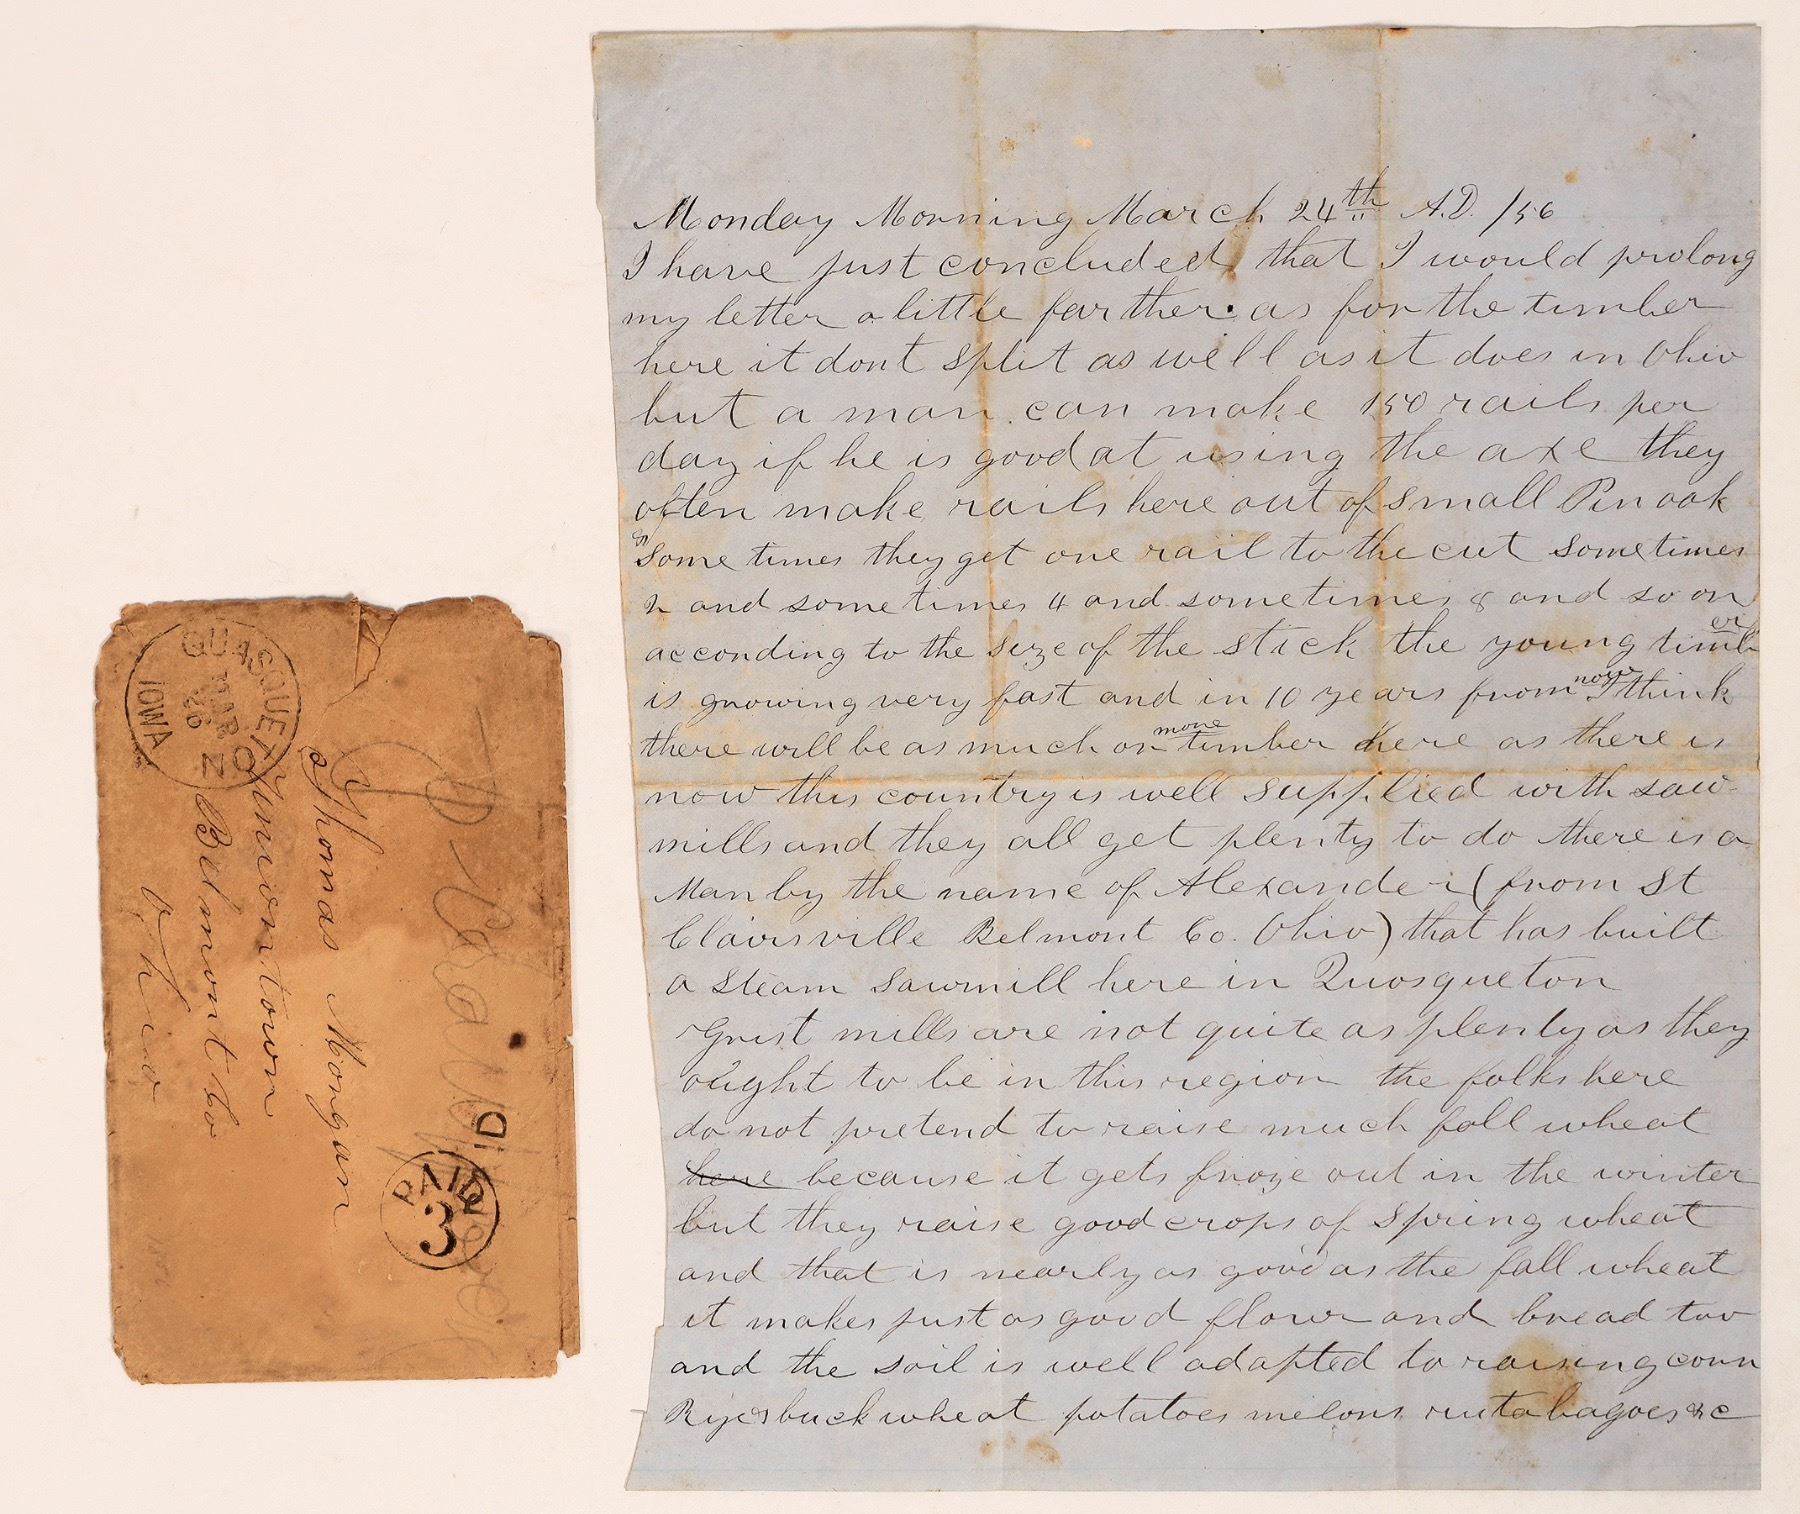 QUASQUETON
IOWA
MAR
26
PAID
3
PAID
Thomas Morgan
Uniontown
Belmont Co
Ohio
Monday Morning March 24th A.D. /56
I have just concluded that I would prolong
my letter a little farther. as for the timber
here it dont split as well as it does in Ohio
but a man can make 150 rails per
day if he is good at using the axe they
often make rails here out of small Pin oak
& some times they get one rail to the cut sometimes
2 and some times 4 and sometimes 8 and so on
according to the size of the stick the young timber
is growing very fast and in 10 years from now I think
there will be as much or more timber here as there is
now this country is well supplied with saw-
mills and they all get plenty to do there is a
Man by the name of Alexander (from St
Clairsville Belmont Co. Ohio) that has built
a steam sawmill here in Quosqueton
Grist mills are not quite as plenty as they
ought to be in this region the folks here
do not pretend to raise much fall wheat
here because it gets froze out in the winter
but they raise good crops of Spring wheat
and that is nearly as good as the fall wheat
it makes just as good flour and bread too
and the soil is well adapted to raising corn
Rye & buckwheat potatoes melons rutabagoes &c